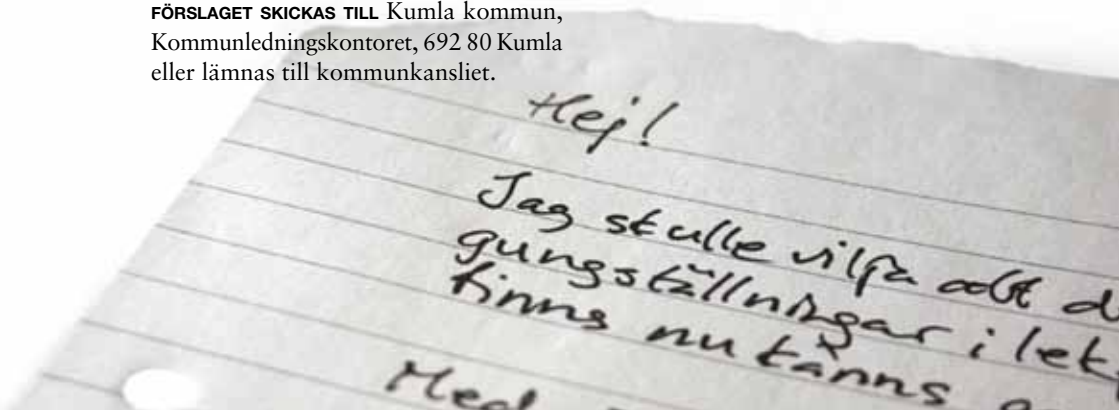 FÖRSLAGET SKICKAS TILL Kumla kommun,
Kommunledningskontoret, 692 80 Kumla
eller lämnas till kommunkansliet.
Hej!
Jag skulle vilja att d
gungställningar i lek
finns nu känns
Med